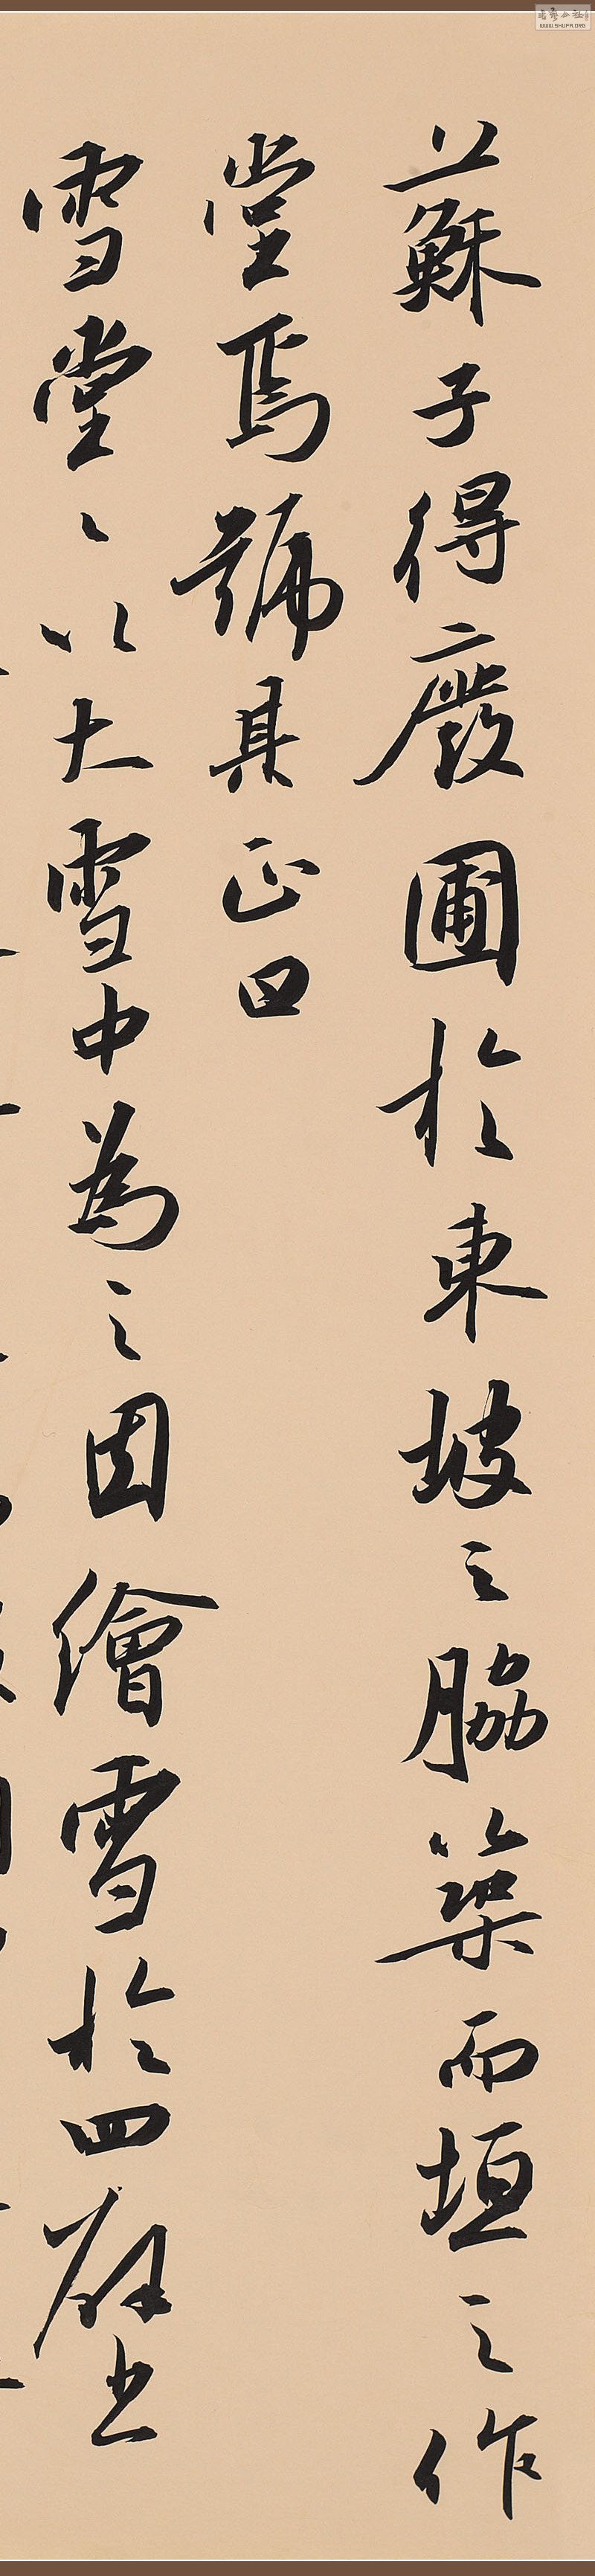 蘇子得廢圃於東坡之脇築而垣之作
堂焉號其正曰
雪堂〻以大雪中為之因繪雪於四壁之
WWW.SHUFA.ORG